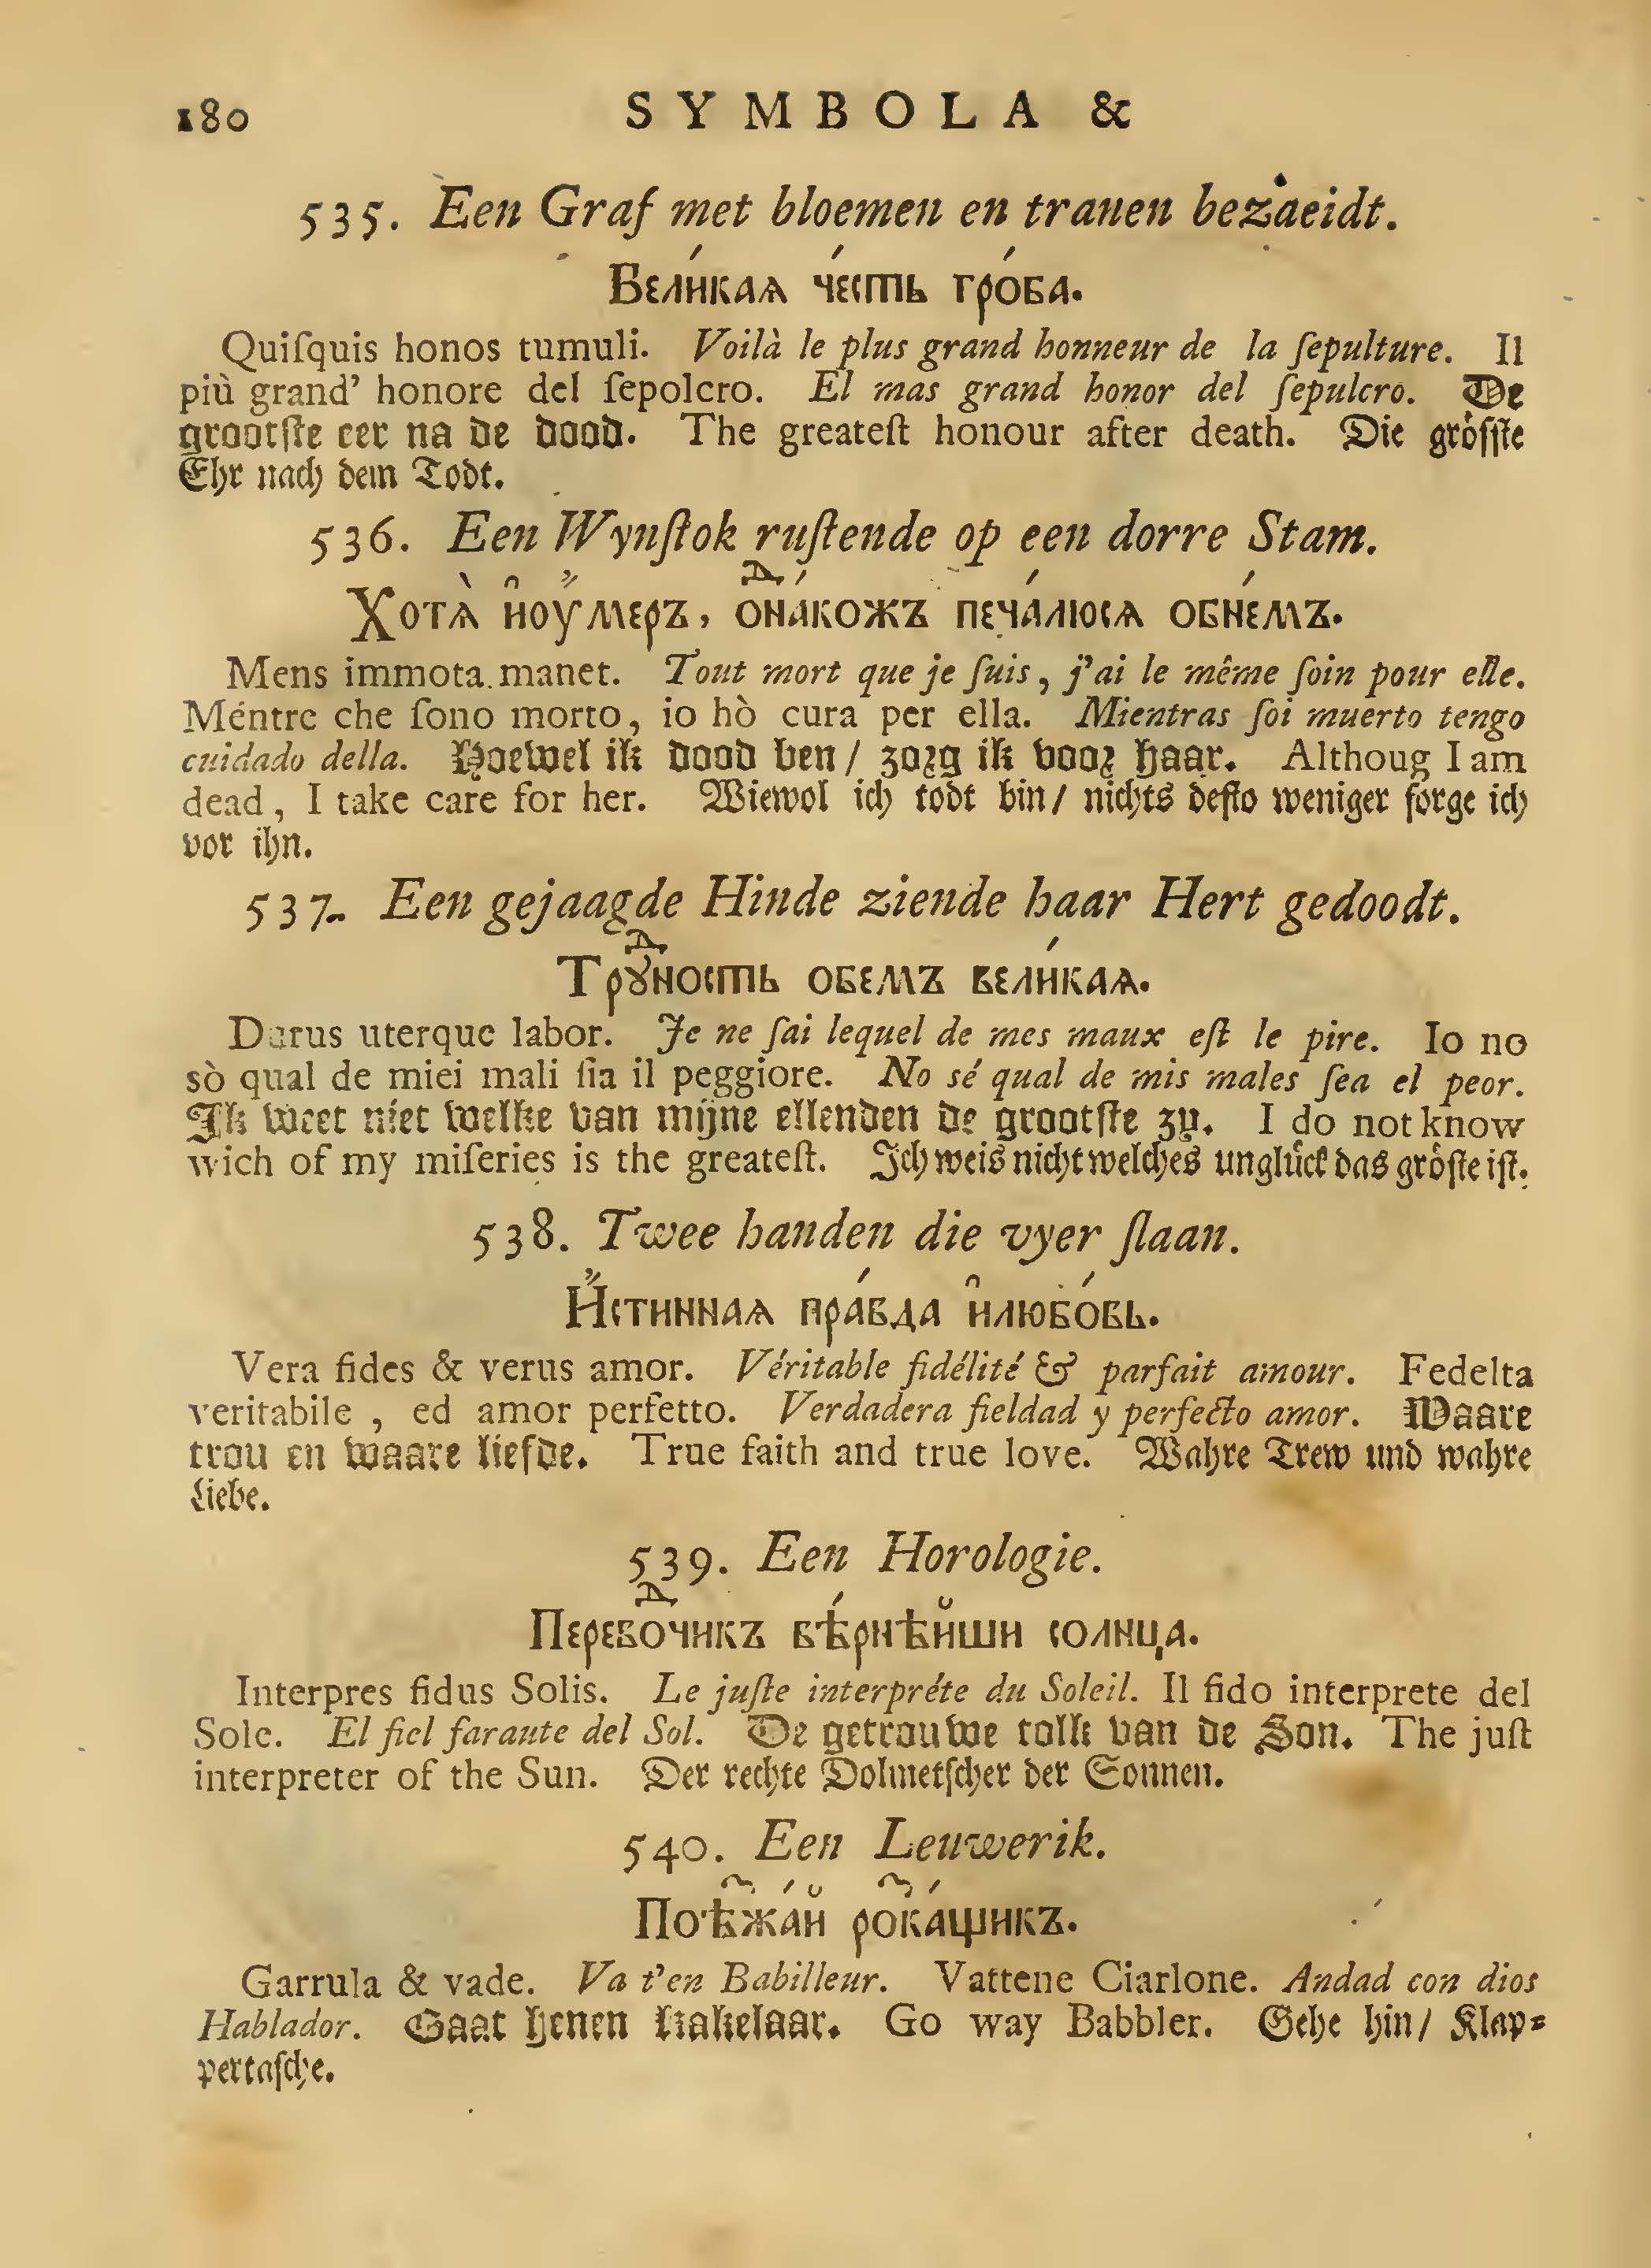 180 SYMBOLA &
535. Een Graf met bloemen en tranen bezaeidt.
Вели́каѧ че́сть гро́ба.
Quiſquis honos tumuli. Voilà le plus grand honneur de la ſepulture. Il
più grand' honore del ſepolcro. El mas grand honor del ſepulcro. De
grootſte eer na de dood. The greateſt honour after death. Die gröſſte
Ehr nach dem Todt.
536. Een Wynſtok ruſtende op een dorre Stam.
Хотѧ̀ и҆оу҆́меръ, ѻⷣна́кожъ печа́люсѧ обне́мъ.
Mens immota manet. Tout mort que je ſuis, j'ai le même ſoin pour elle.
Méntre che ſono morto, io hò cura per ella. Mientras ſoi muerto tengo
cuidado della. Hoewel ik dood ben / zorg ik voor haar. Althoug I am
dead, I take care for her. Wiewol ich todt bin / nichts deſto weniger ſorge ich
vor ihn.
537. Een gejaagde Hinde ziende haar Hert gedoodt.
Трꙋⷣность обемъ вели́каѧ.
Durus uterque labor. Je ne ſai lequel de mes maux eſt le pire. Io no
sò qual de miei mali ſia il peggiore. No sé qual de mis males ſea el peor.
Ik weet niet welke van mijne ellenden de grootſte zy. I do not know
wich of my miſeries is the greateſt. Ich weis nicht welches unglück das gröſte iſt.
538. Twee handen die vyer ſlaan.
И҆́стиннаѧ пра́вда и҆любо́вь.
Vera fides & verus amor. Véritable fidélité & parfait amour. Fedelta
veritabile, ed amor perfetto. Verdadera fieldad y perfecto amor. Waare
trou en waare liefde. True faith and true love. Wahre Trew und wahre
Liebe.
539. Een Horologie.
Перевоⷣчикъ вѣ́рнѣйши солнца.
Interpres fidus Solis. Le juſte interpréte du Soleil. Il fido interprete del
Sole. El fiel faraute del Sol. De getrouwe tolk van de Son. The juſt
interpreter of the Sun. Der rechte Dolmetſcher der Sonnen.
540. Een Leuwerik.
Поѣжа́й рока́щикъ.
Garrula & vade. Va t'en Babilleur. Vattene Ciarlone. Andad con dios
Hablador. Gaat henen kakelaar. Go way Babbler. Gehe hin / Klap-
pertaſche.